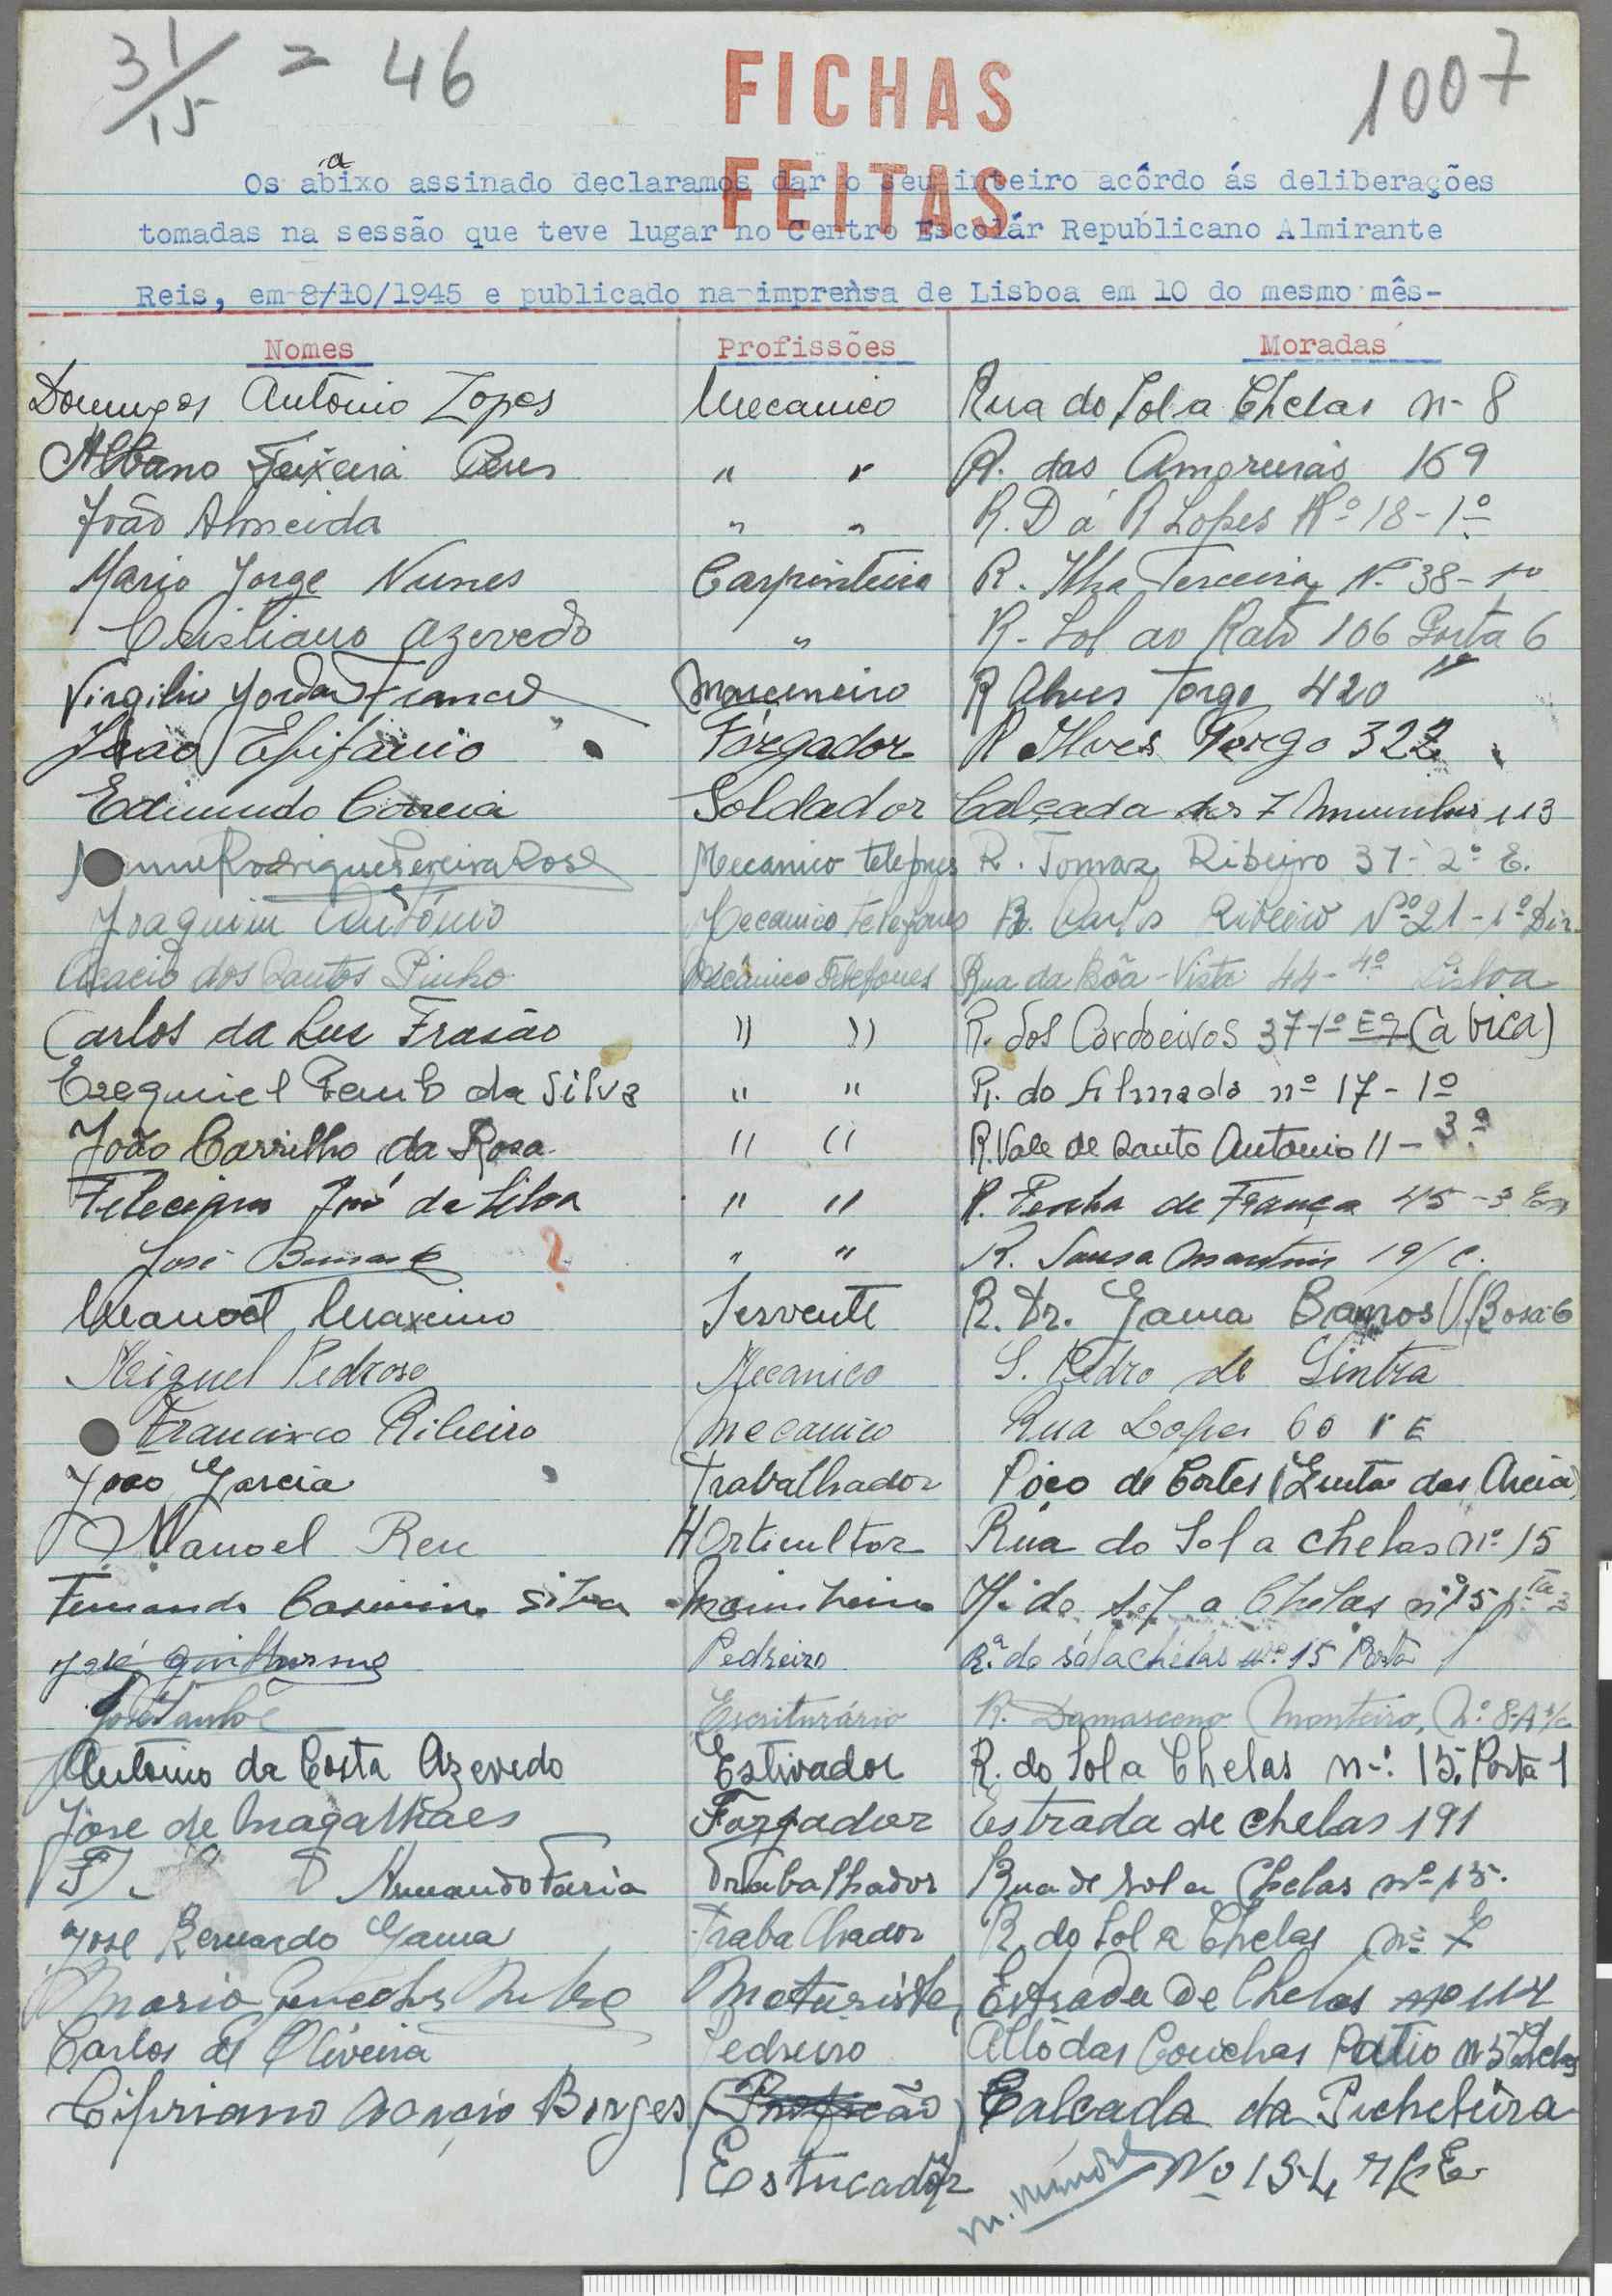 31/15 = 46
1007
FICHAS
FEITAS
Os abaixo assinado declaramos dar o seu inteiro acôrdo ás deliberações
tomadas na sessão que teve lugar no Centro Escolár Republicano Almirante
Reis, em 8/10/1945 e publicado na imprensa de Lisboa em 10 do mesmo mês-
Nomes Profissões Moradas
Domingos António Lopes Mecanico Rua do Sol a Chelas n- 8
Albano Teixeira Peres " " R. das Amoreiras 169
João Almeida " " R. D á R Lopes Nº 18-1º
Mario Jorge Nunes Carpinteiro R. Ilha Terceira Nº 38-1º
Cristiano Azevedo " R. Sol ao Rato 106 Porta 6
Virgilio Marceneiro R Alves Torgo 420
João Epifanio Forgador R Alves Torgo 322
Edmundo Correia Soldador Calçada dos 7 Moinhos 113
Rodrigues Pereira Rosa Mecanico telefones R. Tomaz Ribeiro 37-2º E.
Joaquim António Mecanico Telefones R. Carlos Ribeiro Nº 21-1º Dir.
Acacio dos Santos Pinho Mecânico Telefones Rua da Bôa-Vista 44-4º Lisboa
Carlos da Luz Frasão " " R. dos Cordoeiros 37-1º Eq (à bica)
Ezequiel da Silva " " R. do Almada nº 17-1º
João Carrilho da Rosa " " R. Vale de Santo Antonio 11-3º
José da Silva " " R. Penha de França 45-3 Eq
José ? " " R. Sousa Martins 19 / c.
Manoel Maximo Servente R. Dr. Gama Barros
Miguel Pedroso Mecanico S. Pedro de Sintra
Francisco Ribeiro Mecanico Rua Lopes 60
João Garcia Trabalhador Poço de Cortes (Quinta das Areia)
Manoel Reu Horticultor Rua do Sol a chelas nº 15
Fernando Casimiro Silva R. do Sol a Chelas nº 15
José Guilherme Pedreiro Rª. do Sol a chelas nº 15 Porta 1
Escriturário R. Damasceno Monteiro, Nº 8-A
António da Costa Azevedo Estivador R. do Sol a Chelas nº: 15, Porta 1
José de Magalhães Forjador Estrada de chelas 191
Armando Faria Trabalhador Rua do Sol a Chelas nº 15.
José Bernardo Gama Trabalhador R. do Sol a Chelas nº
Mario Estrada De Chelas nº 114
Carlos de Oliveira Pedreiro Alto das Conchas Patio nº 5 Chelas
Cipriano Acacio Borges Calcada da Picheleira
Estucador Nº 154 r/c E